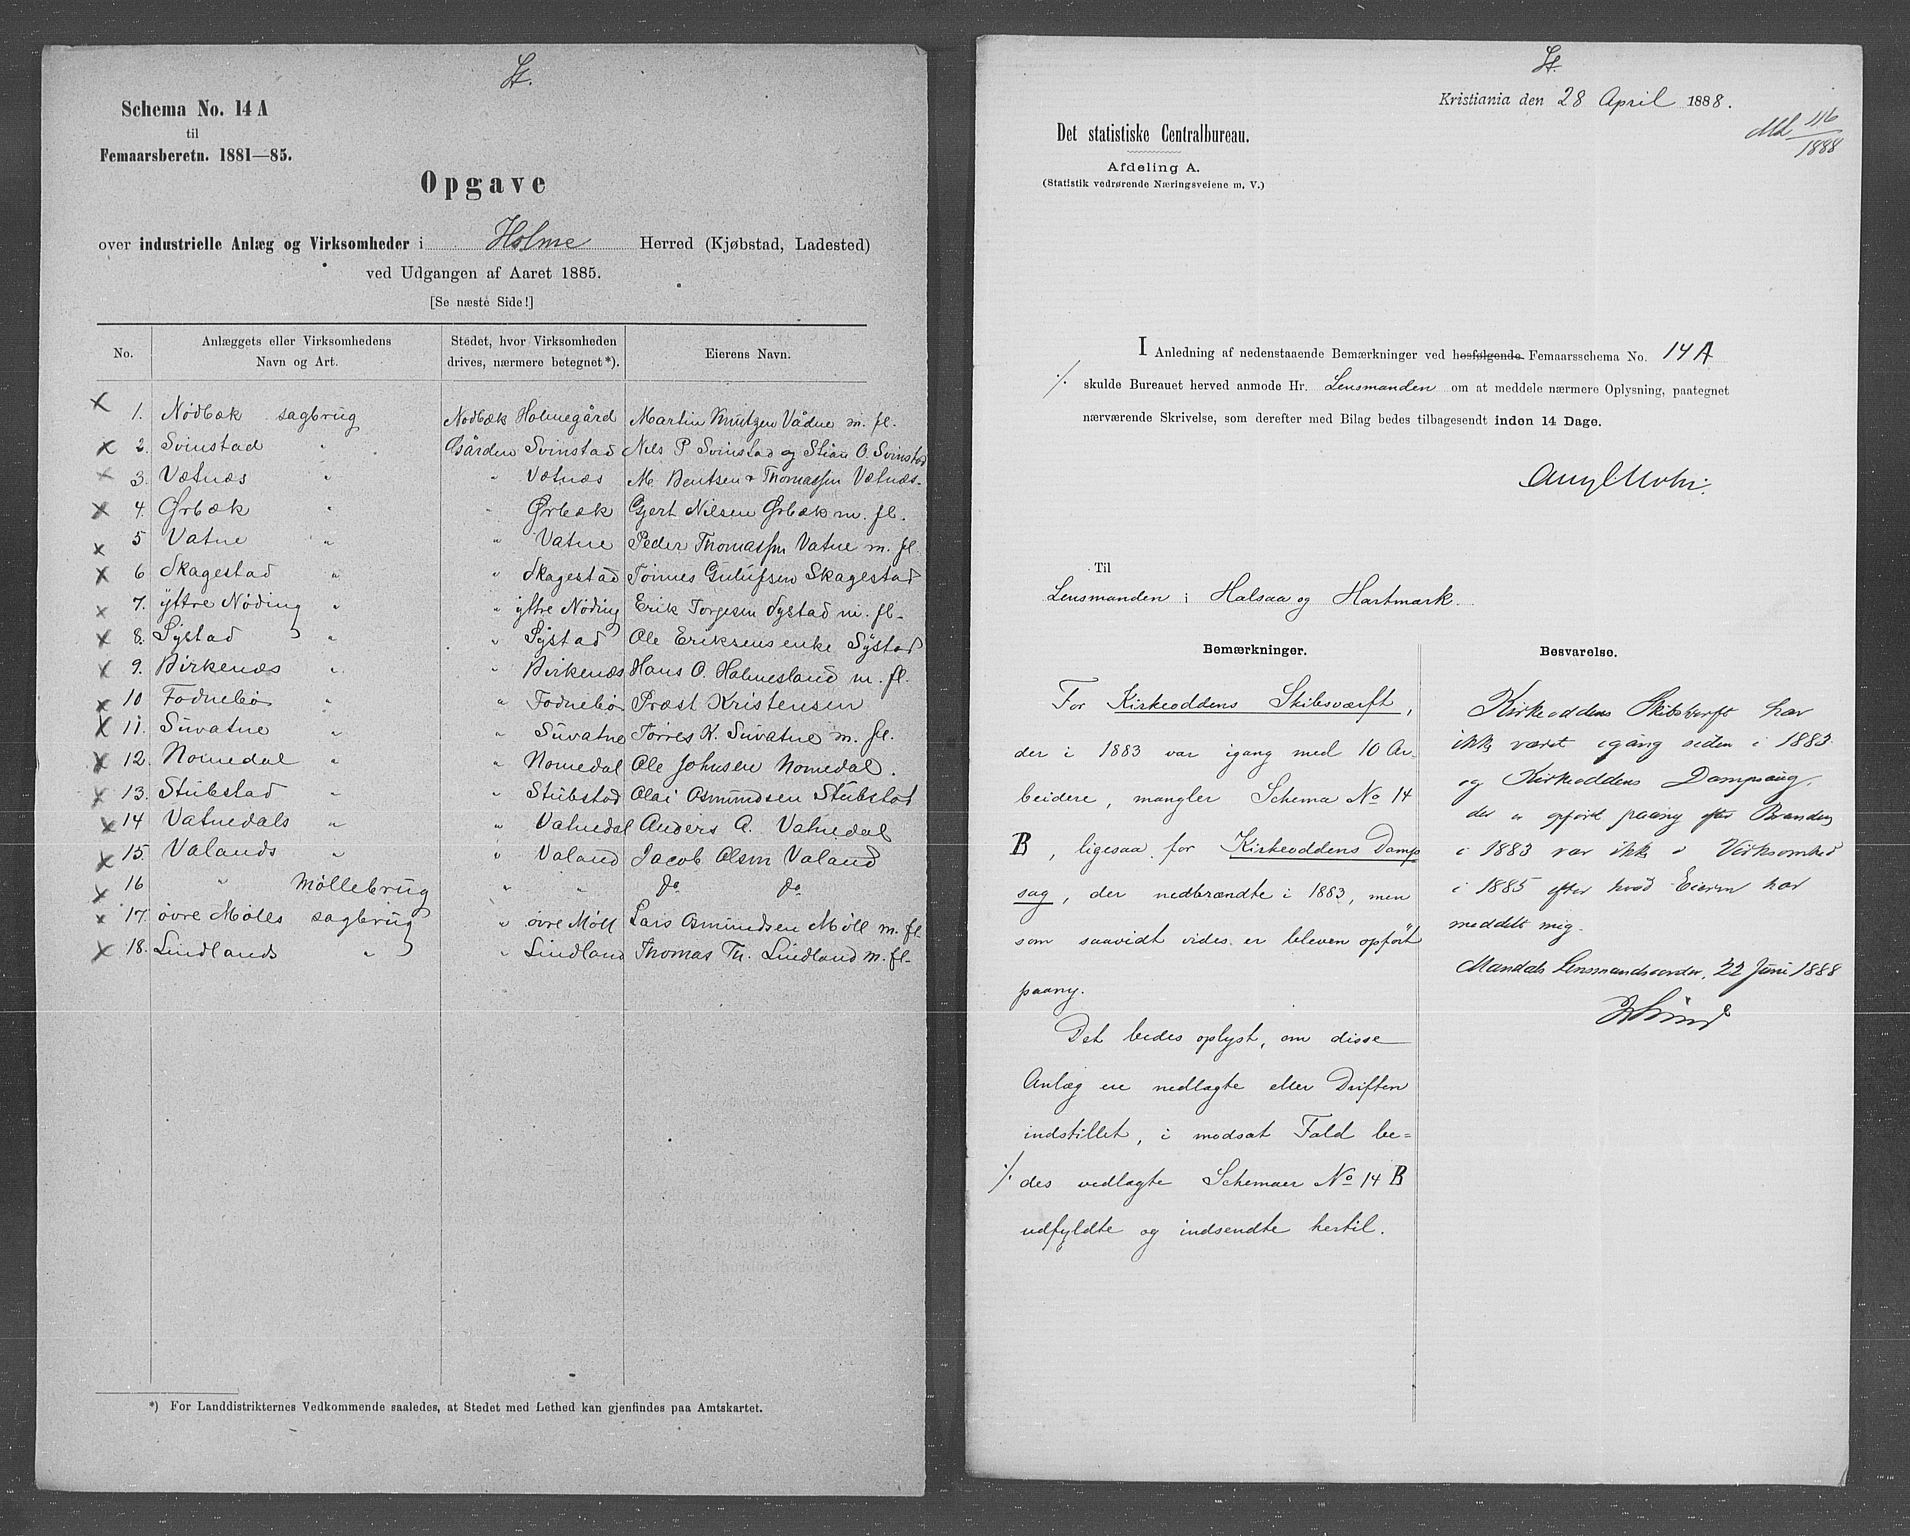 St.
Schema No. 14 A
til
Femaarsberetn. 1881—85.
Opgave
over industrielle Anlæg og Virksomheder i Holme Herred (Kjøbstad, Ladested)
ved Udgangen af Aaret 1885.
[Se næste Side!]
No. Anlæggets eller Virksomhedens Navn og Art. Stedet, hvor Virksomheden drives, nærmere betegnet*). Eierens Navn.
1. Nødbæk sagbrug Nødbæk Holmegård Martin Knutzen Vådne m. fl.
2. Svinstad " Gården Svinstad Nils P Svinstad og Stian O. Svinstad
3. Vætnæs " " Vætnæs M. Bentsen & Thomassen Vætnæs.
4. Ørbæk " " Ørbæk Gjert Nilsen Ørbæk m. fl.
5 Vatne " " Vatne Peder Thomassen Vatne m. fl.
6 Skagestad " " Skagestad Tønnes Gulufsen Skagestad
7. ÿttre Nöding " " ÿttre Nöding Erik Torgesen Systad m. fl.
8. Sÿstad " " Sÿstad Ole Eriksens enke Sÿstad
9. Birkenæs " " Birkenæs Hans O. Holmesland m. fl.
10 Fodnebø " " Fodnebø Præst Kristensen
11. Suvatne " " Suvatne Torres K. Suvatne m. fl.
12. Nomedal " " Nomedal Ole Johnsen Nomedal.
13. Stubstad " " Stubstad Olai Osmundsen Stubstad
14 Vatnedals " " Vatnedal Anders A. Vatnedal
15. Valands " " Valand Jacob Olsen Valand
16 " Møllebrug " " Do Do
17. øvre Mølls sagbrug " øvre Møll Lars Osmundsen Møll m. fl
18. Lindlands " " Lindland Thomas Th. Lindland m. fl.
*) For Landdistrikternes Vedkommende saaledes, at Stedet med Lethed kan gjenfindes paa Amtskartet.
St.
Kristiania den 28 April 1888.
116
1888
Det statistiske Centralbureau.
Afdeling A.
(Statistik vedrørende Næringsveiene m. V.)
I Anledning af nedenstaaende Bemærkninger ved hosfølgende Femaarsschema No. 14 A
./. skulde Bureauet herved anmode Hr. Lensmanden om at meddele nærmere Oplysning, paategnet
nærværende Skrivelse, som derefter med Bilag bedes tilbagesendt inden 14 Dage.
Til
Lensmanden i Halsaa og Hartmark.
Bemærkninger.
For Kirkeoddens Skibsværft,
der i 1883 var igang med 10 Ar-
beidere, mangler Schema No 14
B, ligesaa for Kirkeoddens Damp
sag, der nedbrændte i 1883, men
som saavidt vides er bleven opført
paany.
Det bedes oplyst, om disse
Anlæg ere nedlagte eller Driften
indstillet, i modsat Fald be=
./. des vedlagte Schemaer No 14 B
udfyldte og indsendte hertil.
Besvarelse.
Kirkeoddens Skibsverft har
ikke været igang siden i 1883
og Kirkeoddens Dampsaug,
der er opført paany efter Branden
i 1883 var ikke i Virksomhed
i 1885 efter hvad Eieren har
meddelt mig.
Mandals Lensmandsorden, 22 Juni 1888